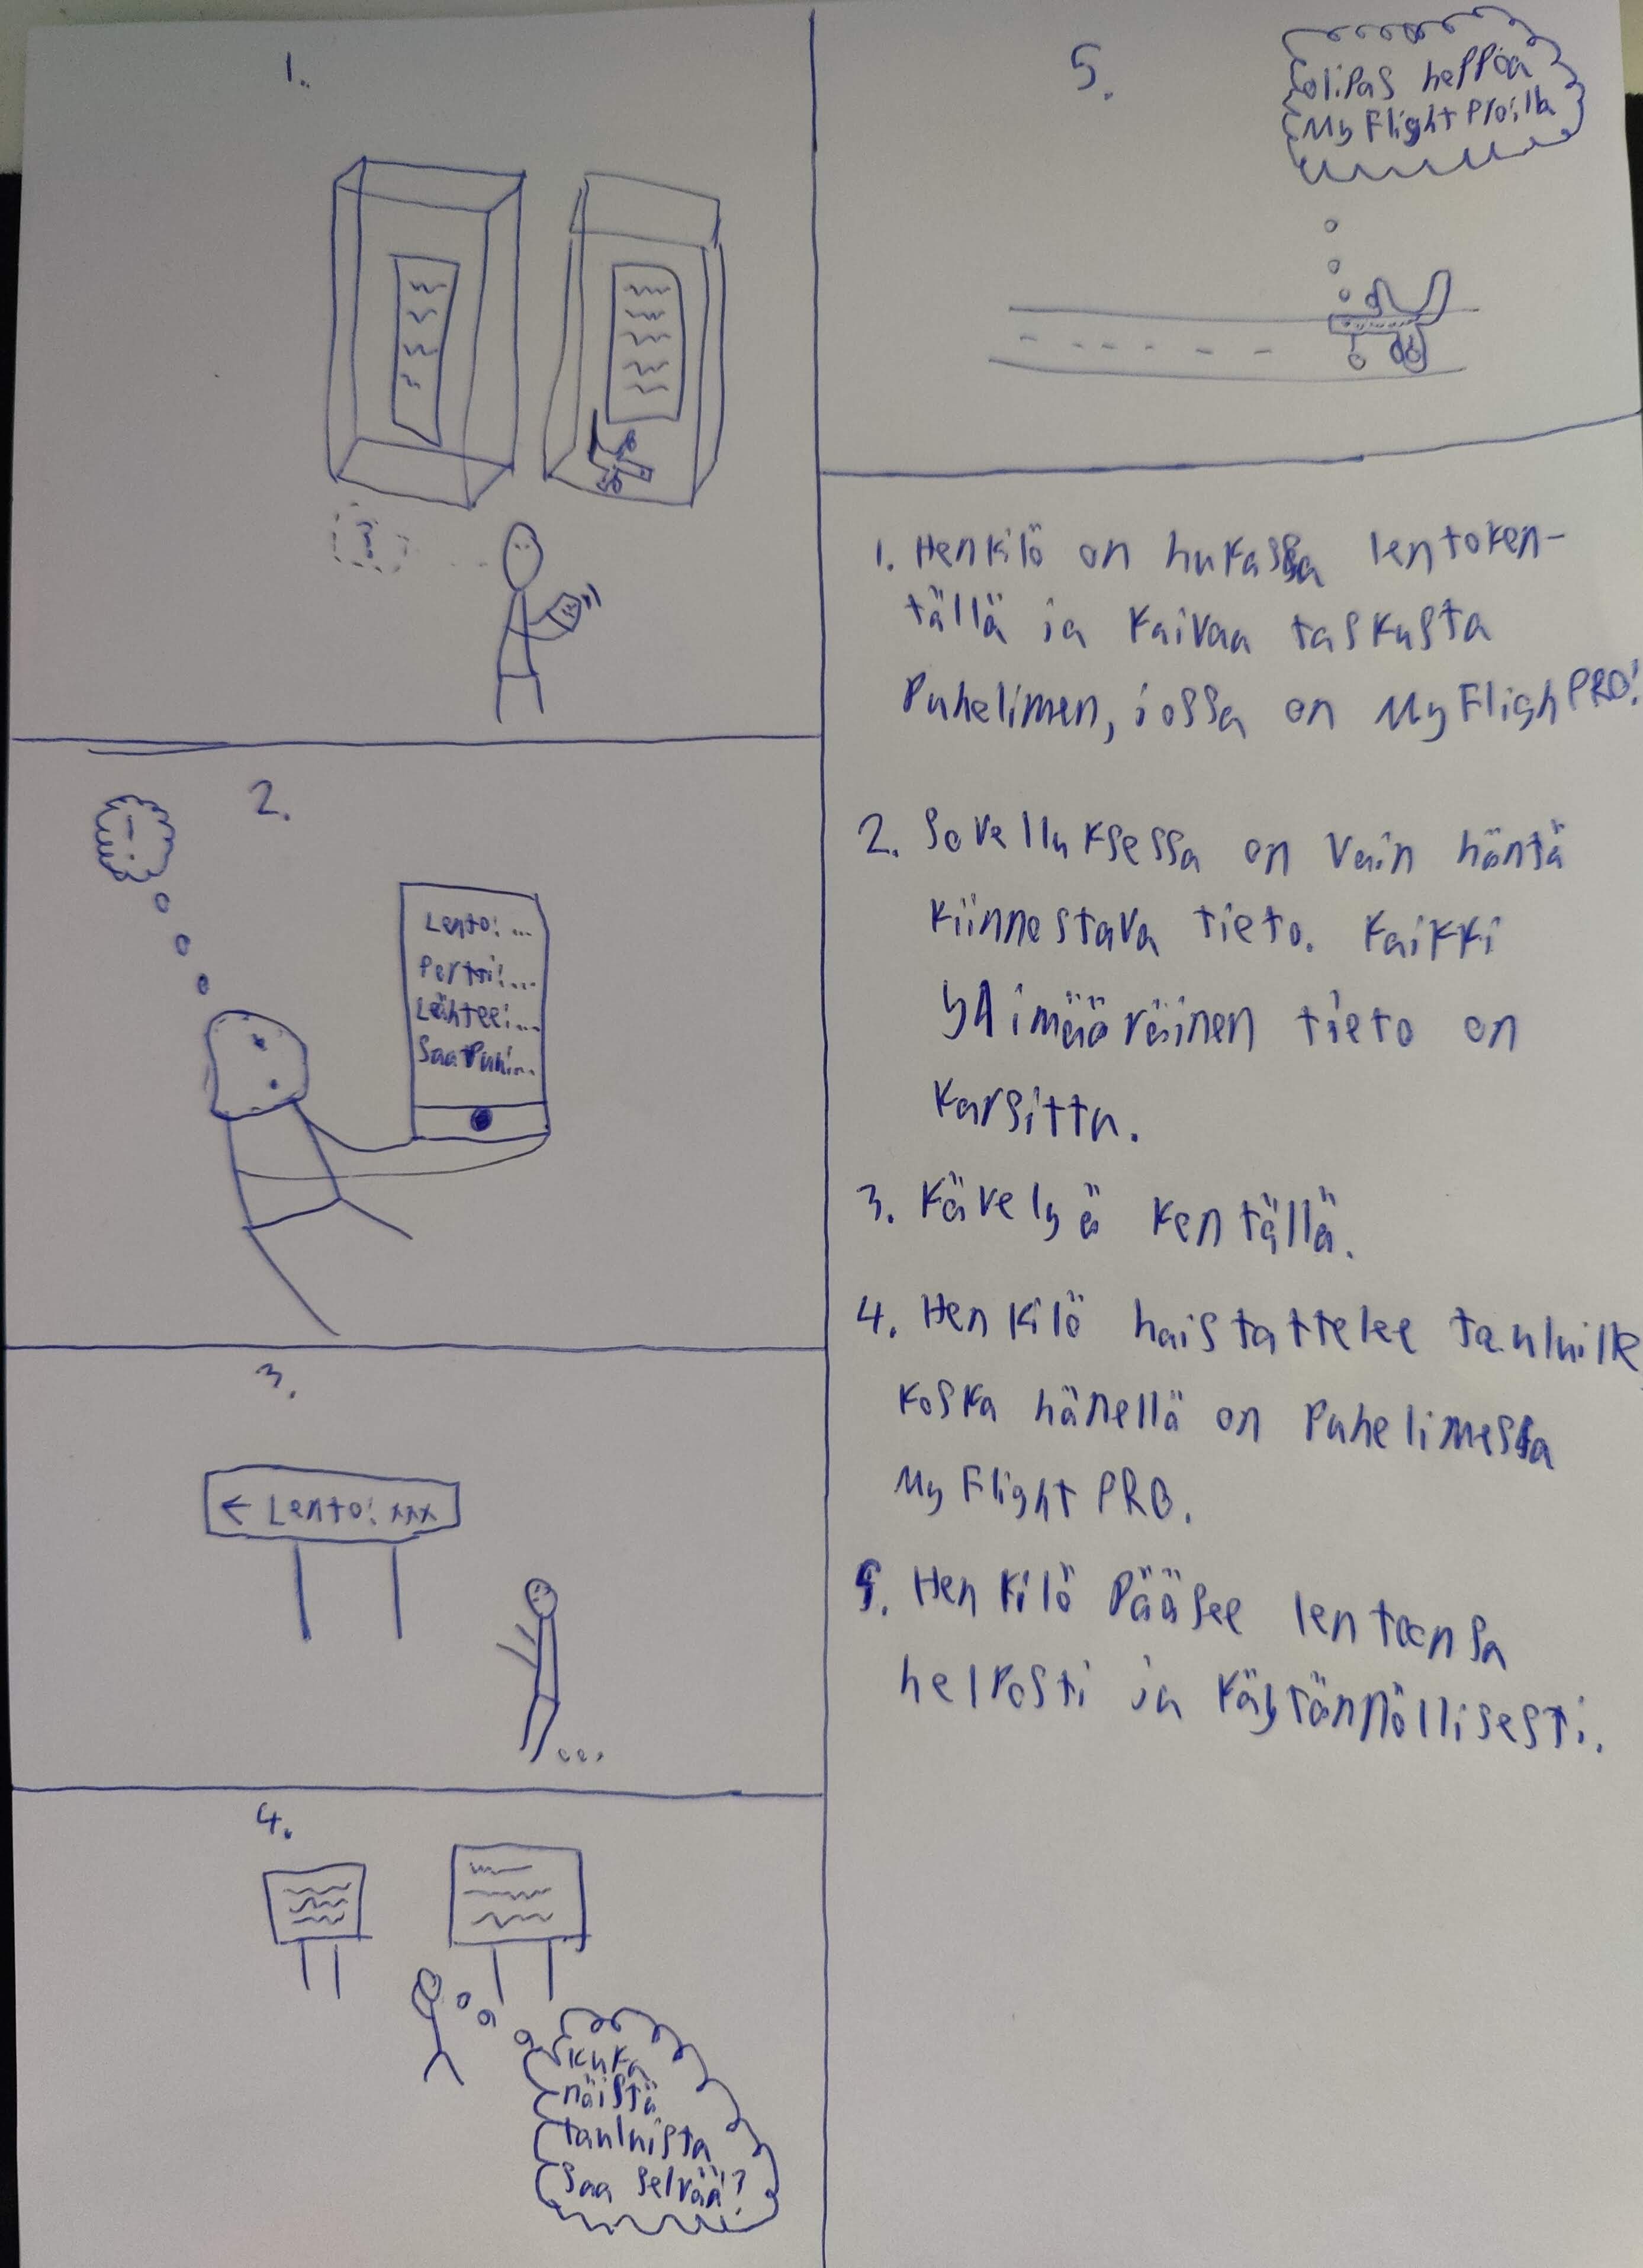 1.
?
2.
!
Lento: ...
Portti: ...
Lähtee: ...
Saapuu: ...
3.
← Lento: xxx
4.
Kuka
näistä
tauluista
saa selvää?
5.
olipas heppoa
My Flight Proilla
1. Henkilö on hukassa lentoken-
tällä ja kaivaa taskusta
Puhelimen, jossa on My Fligh PRO!
2. Sovelluksessa on vain häntä
kiinnostava tieto. Kaikki
ylimääräinen tieto on
karsittu.
3. Kävelyä kentällä.
4. Henkilö haistattelee tauluille
koska hänellä on Puhelimessa
My Flight PRO.
5. Henkilö Pääsee lentoonsa
helposti ja käytännöllisesti.